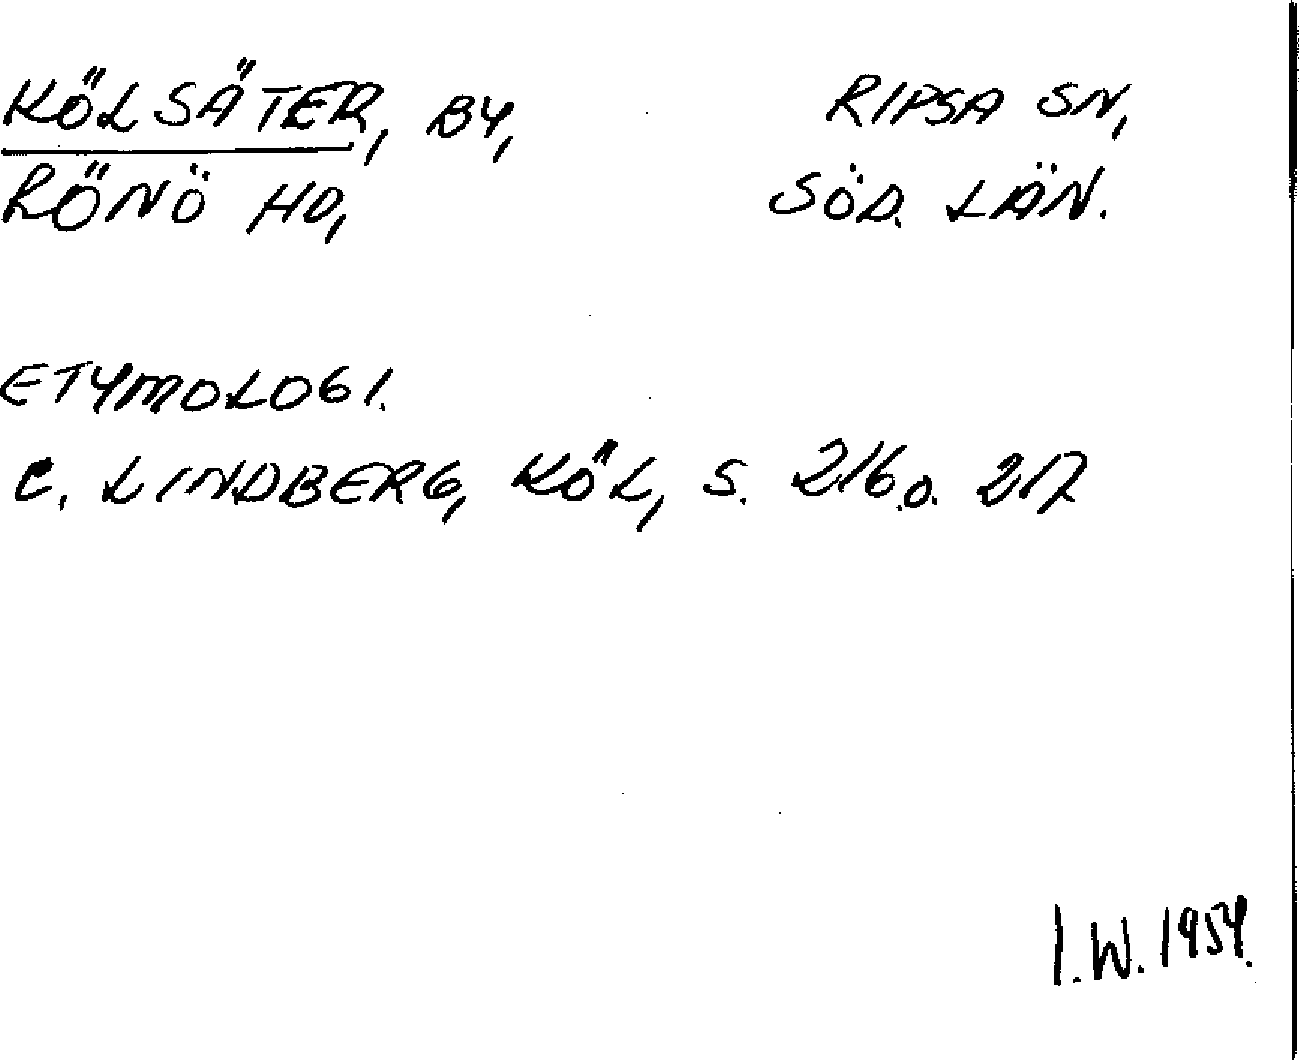 KÖLSÄTER, BY, RIPSA SN,
RÖNÖ HD, SÖD. LÄN.
ETYMOLOGI.
C. LINDBERG, KÖL, S. 216 O. 217
I.W. 1954.